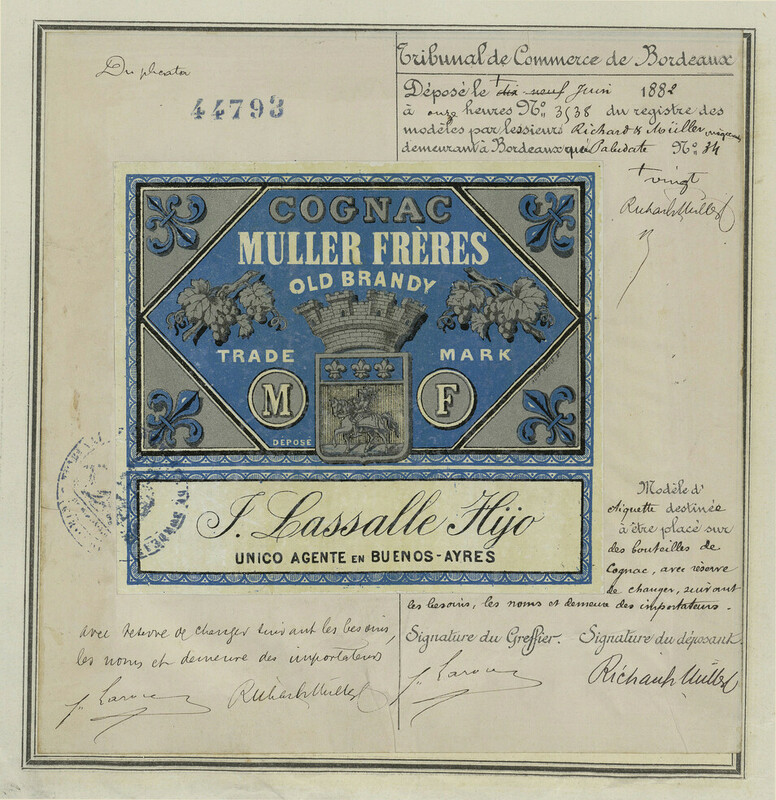 Duplicata
44793
Tribunal de Commerce de Bordeaux
Déposé le dix neuf Juin 1882
à onze heures Nº 3538 du registre des
modèles par les sieurs Richard & Müller
demeurant à Bordeaux quai Paludate Nº 34
+ vingt
Richard & Müller
COGNAC
MULLER FRÈRES
OLD BRANDY
TRADE MARK
M F
DEPOSÉ
J. Lassalle Hijo
UNICO AGENTE EN BUENOS-AYRES
Modèle d'
étiquette destinée
à être placé sur
des bouteilles de
Cognac, avec réserve
de changer, suivant
les besoins, les noms et demeure des importateurs.
avec réserve de changer suivant les besoins,
les noms et demeure des importateurs
Signature du Greffier. Signature du déposant.
Richard & Müller
Richard & Müller